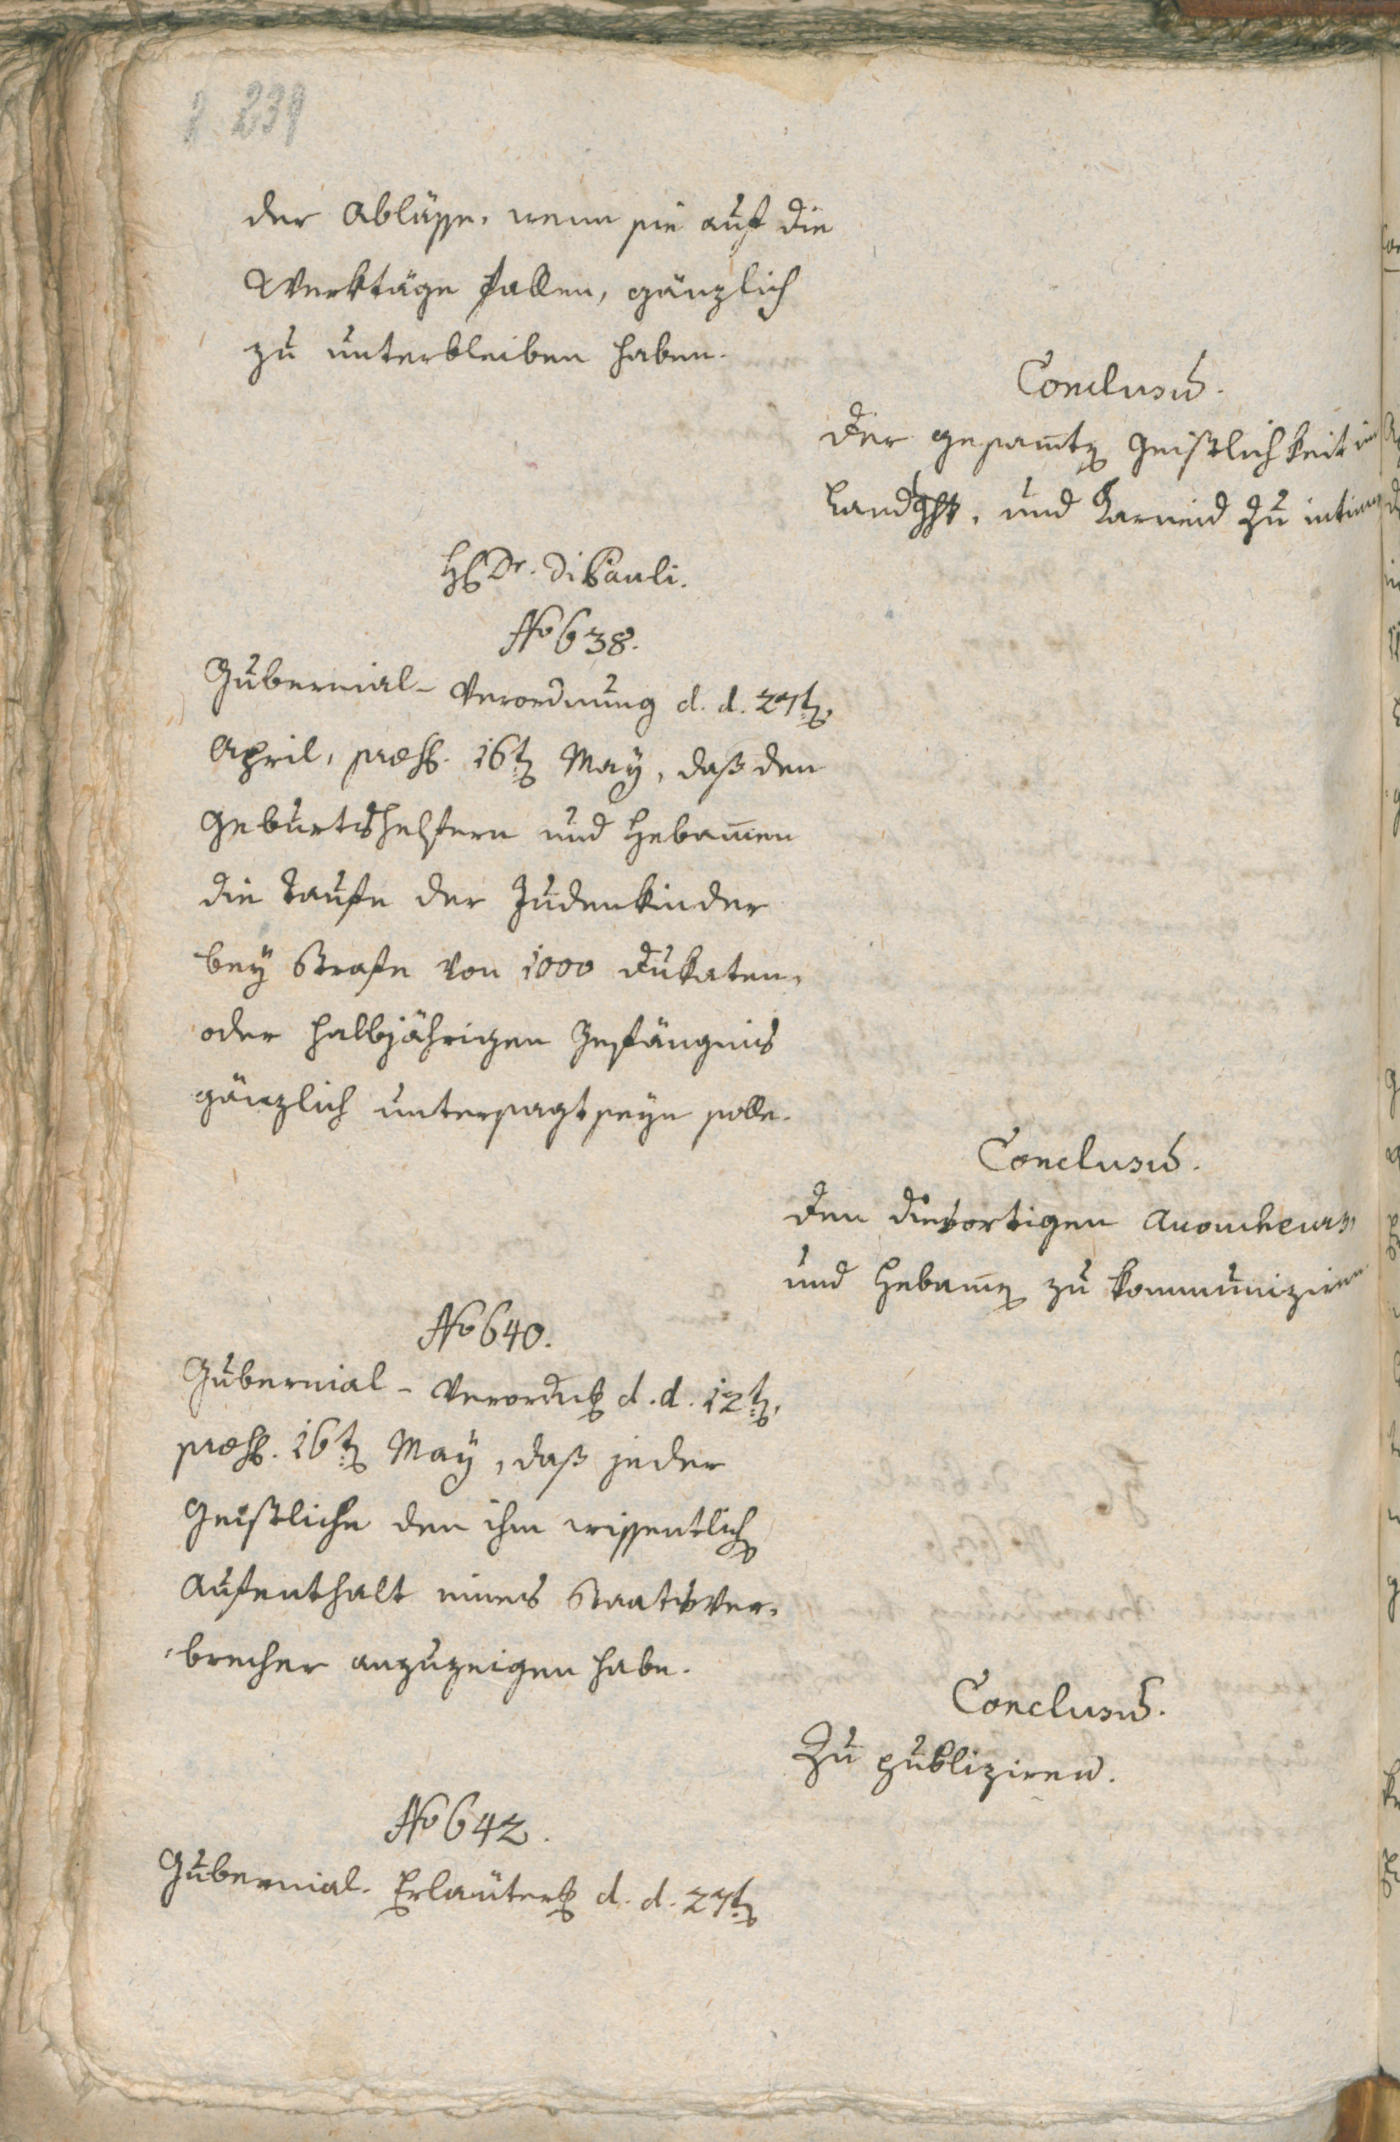 239
der Abläße, wenn sie auf die
Werktäge fallen, gänzlich
zu unterbleiben haben.
Conclusum.
Der gesamten Geistlichkeit im
Landgericht, und Karneid zu intim
H. Dr. Di Pauli.
No 638.
Gubernial-Verordnung d. d. 27ten,
April, præs. 16ten May, daß den
Geburtshelfern und Hebamen
die Taufe der Judenkinder
bey Strafe von 1000 Dukaten,
oder halbjährigen Gefängnis
gänzlich untersagt seyn solle.
Conclusum.
Den dießortigen Accoucheurs,
und Hebamen zu kommuniziren
No 640.
Gubernial-Verordnung d. d. 12ten,
præs. 16ten May, daß jeder
Geistliche den ihm wissentlich
Aufenthalt eines Staatsver-
brecher anzuzeigen habe.
Conclusum.
Zu publiziren.
No 642.
Gubernial-Erläuterung d. d. 27ten